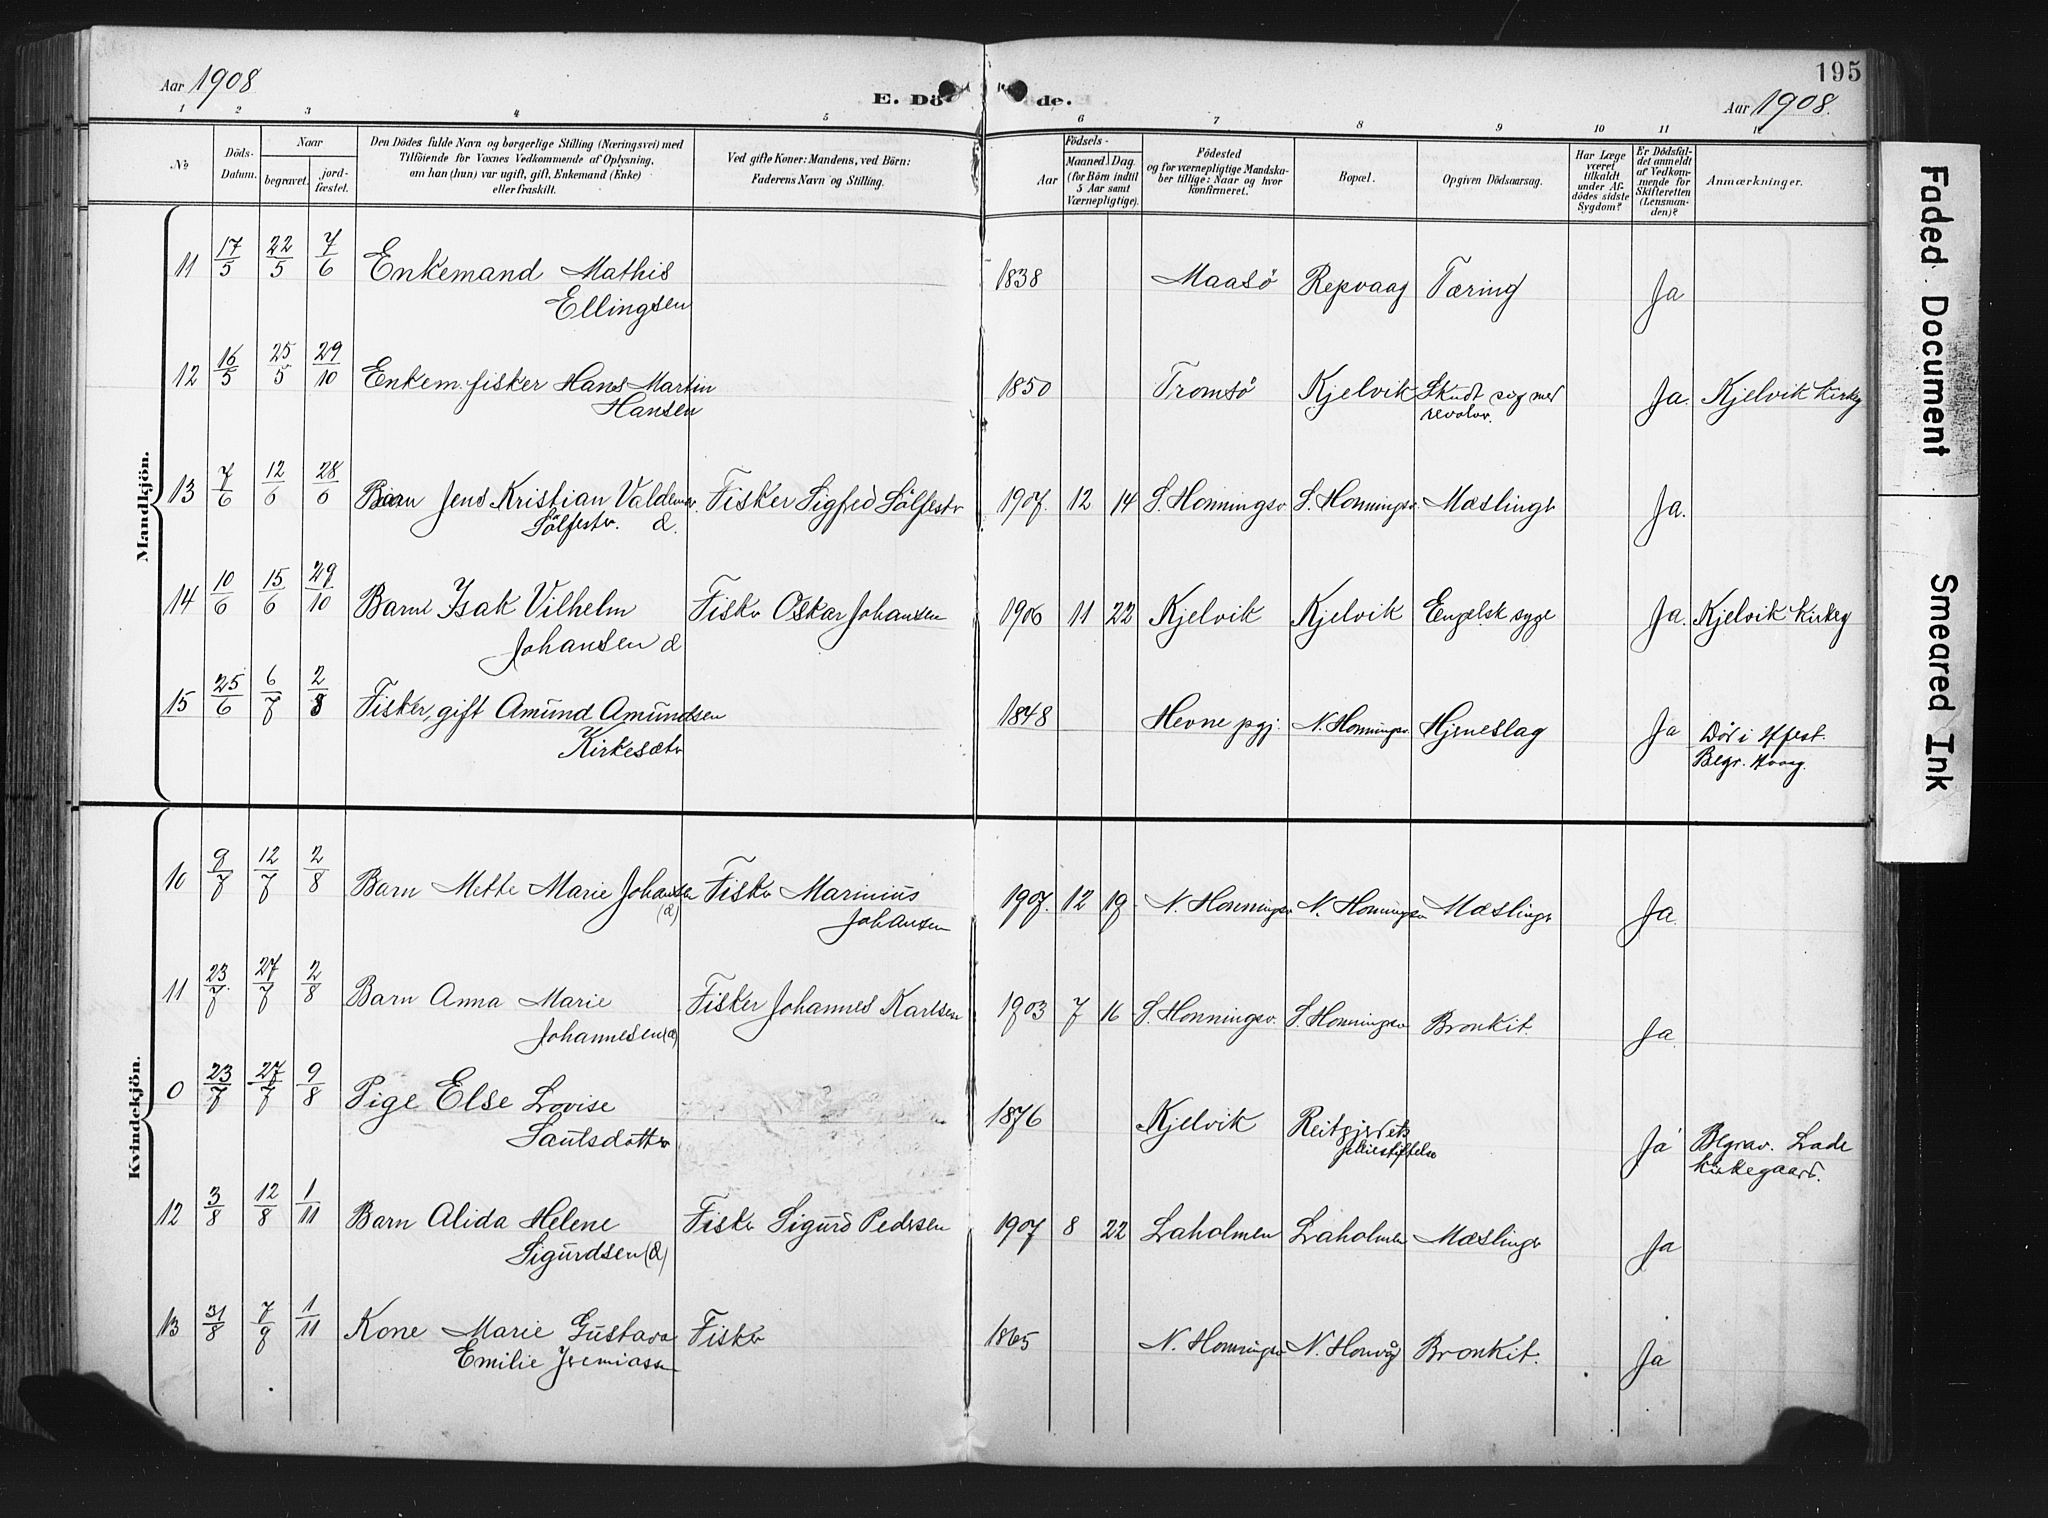 Aar 1908
E. Dö
de.
195
Aar 1908.
1 2 3 4 5 6 7 8 9 10 11
No
Döds-Datum.
Naar
begravet.
jord-fæstet.
Den Dödes fulde Navn og borgerlige Stilling (Næringsvei) med
Tilföiende for Voxnes Vedkommende af Oplysning,
om han (hun) var ugift, gift, Enkemand (Enke)
eller fraskilt.
Ved gifte Koner: Mandens, ved Börn:
Faderens Navn og Stilling.
Födsels-
Aar
Maaned. Dag.
(for Börn indtil
5 Aar samt
Værnepligtige).
Födested
og for værnepligtige Mandska-
ber tillige: Naar og hvor
konfirmeret.
Bopæl.
Opgiven Dödsaarsag.
Har Læge
været
tilkaldt
under Af-
dödes sidste
Sygdom?
Er Dödsfal-
det anmeldt
af Vedkom-
mende for
Skifteretten
(Lensman-
den)?
Anmærkninger.
Mandkjön.
11 17/5 22/5 7/6 Enkemand Mathis 1838 Maasö Repvaag Tæring Ja
Ellingsen
12 16/5 25/5 29/10 Enkem. fisker Hans Martin 1850 Tromsö Kjelvik Skudt sig med Ja. Kjelvik Kirkeg
Hansen revolver.
13 7/6 12/6 28/6 Barn Jens Kristian Valdemar Fisker Sigfed Sölfestv 1907. 12 14 S. Honningsv. S. Honningsv. Mæslinger Ja.
Sölfestv. d.
14 10/6 15/6 29/10 Barn Isak Vilhelm Fisker Oskar Johansen 1906 11 22 Kjelvik Kjelvik Engelsk syge Ja. Kjelvik Kirkeg
Johansen d
15 25/6 6/7 2/8 Fisker, gift Amund Amundsen 1848 Hevne pgj. N. Honningsv. Hjerneslag Ja Död i Hfest.
Kirkesætr Begr. Hvaag.
Kvindekjön.
10 9/7 12/7 2/8 Barn Mette Marie Johansen Fisker Marinius 1907. 12 19 N. Honningsv N. Honningsv Mæslinger Ja.
(d) Johansen
11 23/7 27/7 2/8 Barn Anna Marie Fisker Johannes Karlsen 1903 7 16 S. Honningsv. S. Honningsv Bronkit. Ja.
Johannesen (d)
0 23/7 27/7 9/8 Pige Else Lovise 1876 Kjelvik Reitgjerdets Ja Begrav. Lade
Sautsdotter pleiestiftelse Kirkegaard.
12 3/8 12/8 1/11 Barn Alida Helene Fisker Sigurd Pedersen 1907 8 22 Laholmen Laholmen Mæslinger Ja
Sigurdsen (d)
13 31/8 7/9 1/11 Kone Marie Gustava Fisker 1865 N. Honningsv N. Honvåg Bronkit. Ja
Emilie Jeremiassen
Faded Document
Smeared Ink